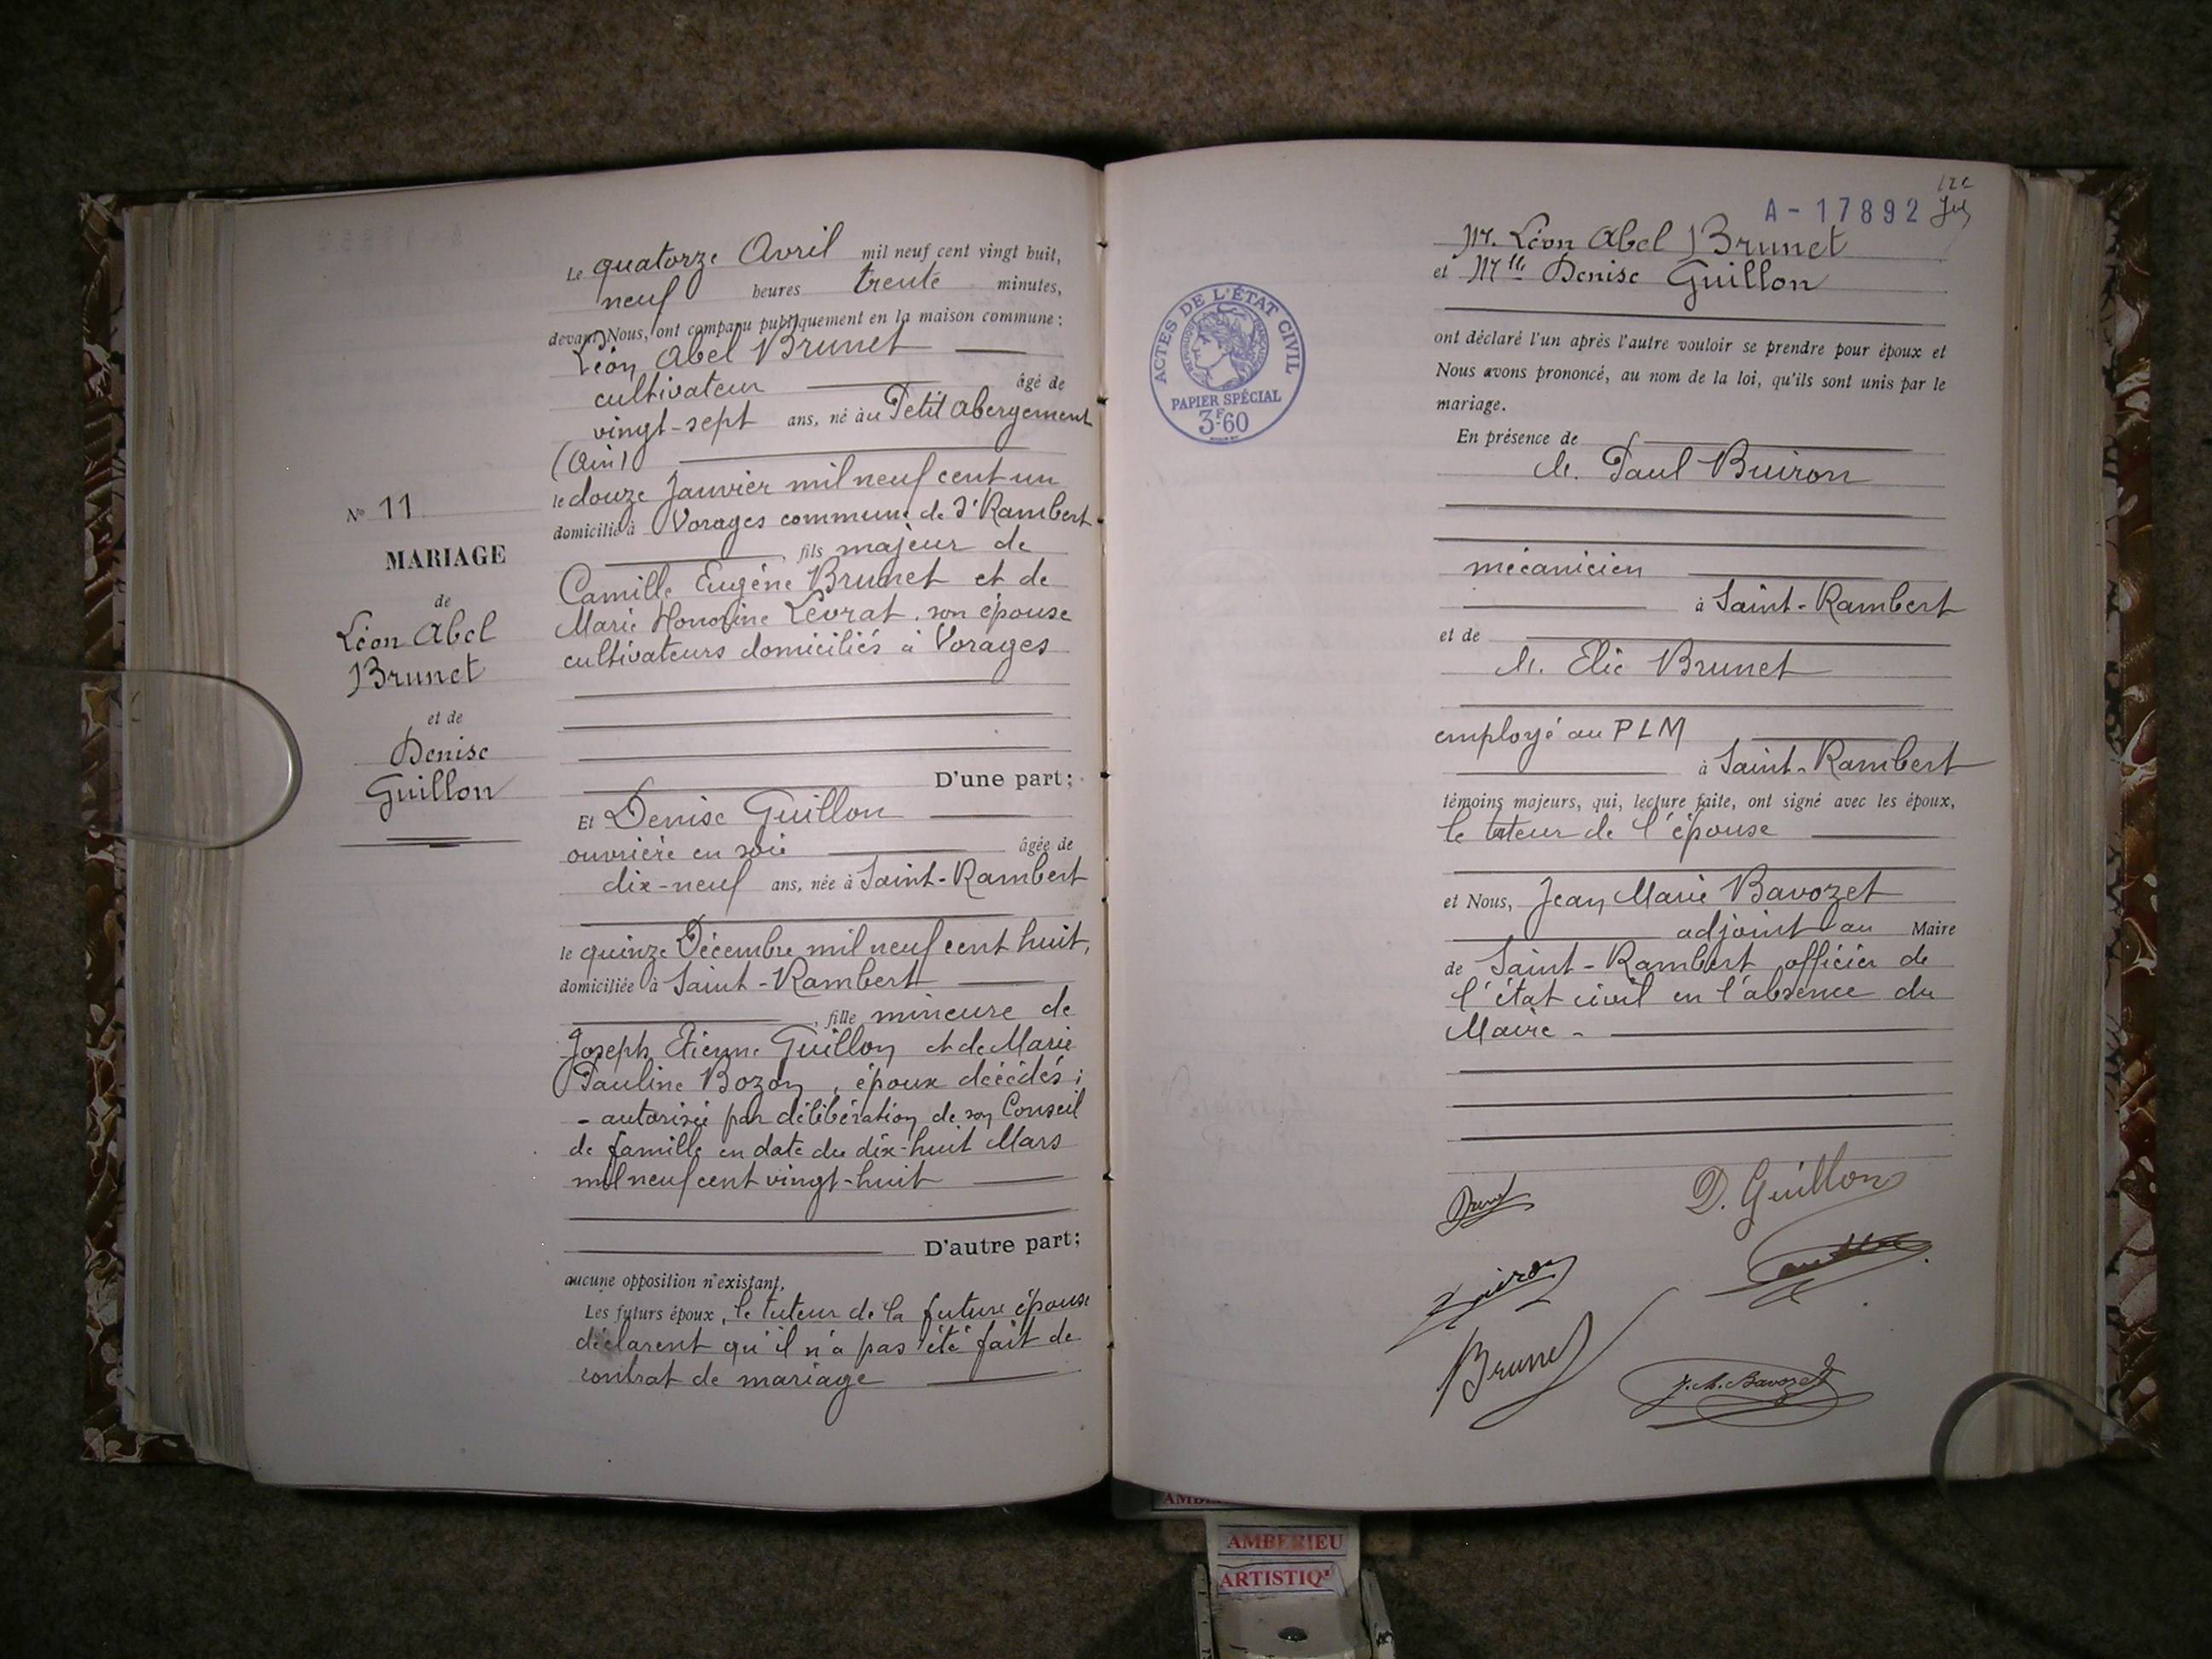 N° 11
MARIAGE
de
Léon Abel
Brunet
et de
Denise
Guillon
Le quatorze Avril mil neuf cent vingt huit,
neuf heures trente minutes,
devant Nous, ont comparu publiquement en la maison commune :
Léon Abel Brunet
cultivateur âgé de
vingt-sept ans, né à au Petit Abergement
(Ain)
le douze Janvier mil neuf cent un
domicilié à Vorages commune de St Rambert
, fils majeur de
Camille Eugène Brunet et de
Marie Honorine Levrat, son épouse
cultivateurs domiciliés à Vorages
D'une part ;
Et Denise Guillon
ouvrière en soie âgée de
dix-neuf ans, née à Saint-Rambert
le quinze Décembre mil neuf cent huit,
domiciliée à Saint-Rambert
, fille mineure de
Joseph Etienne Guillon et de Marie
Pauline Bozon, époux décédés ;
- autorisée par délibération de son Conseil
de famille en date du dix-huit Mars
mil neuf cent vingt-huit
D'autre part ;
aucune opposition n'existant.
Les futurs époux, le tuteur de la future épouse
déclarent qu'il n'a pas été fait de
contrat de mariage
A-17892
M. Léon Abel Brunet
et Mlle Denise Guillon
ACTES DE L'ÉTAT CIVIL
RÉPUBLIQUE FRANÇAISE
PAPIER SPÉCIAL
3F60
ont déclaré l'un après l'autre vouloir se prendre pour époux et
Nous avons prononcé, au nom de la loi, qu'ils sont unis par le
mariage.
En présence de
M. Paul Buiron
mécanicien
à Saint-Rambert
et de
M. Elie Brunet
employé au PLM
à Saint-Rambert
témoins majeurs, qui, lecture faite, ont signé avec les époux,
le tuteur de l'épouse
et Nous, Jean Marie Bavozet
adjoint au Maire
de Saint-Rambert officier de
l'état civil en l'absence du
Maire -
D. Guillon
Buiron
Brunet
J. M. Bavozet
AMBERIEU
ARTISTIQ